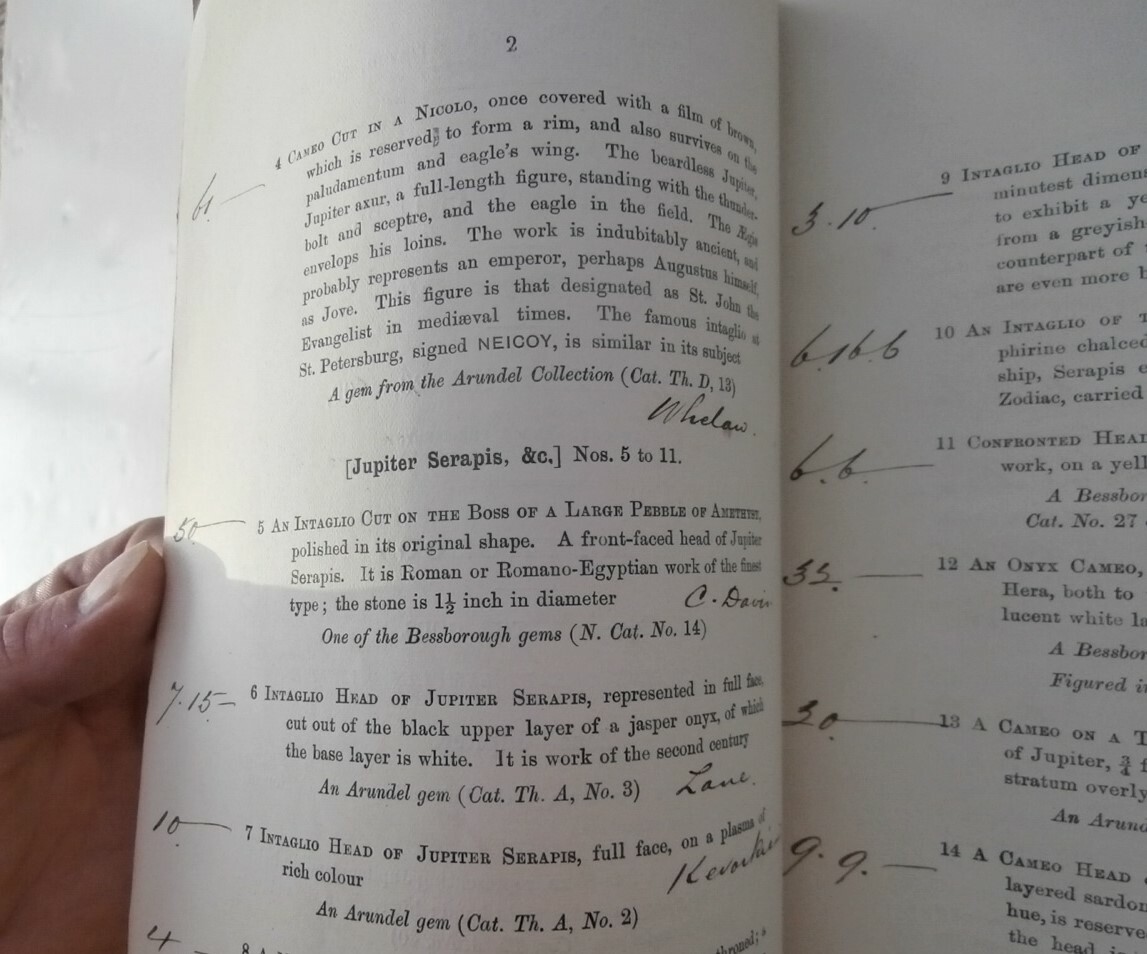 2
4 CAMEO CUT IN A NICOLO, once covered with a film of brown,
which is reserved, to form a rim, and also survives on the
paludamentum and eagle's wing. The beardless Jupiter,
Jupiter axur, a full-length figure, standing with the thunder-
bolt and sceptre, and the eagle in the field. The Ægis
envelops his loins. The work is indubitably ancient, and
probably represents an emperor, perhaps Augustus himself,
as Jove. This figure is that designated as St. John the
Evangelist in mediæval times. The famous intaglio at
St. Petersburg, signed NEICOY, is similar in its subject
A gem from the Arundel Collection (Cat. Th. D, 13)
Whelan.
[Jupiter Serapis, &c.] Nos. 5 to 11.
50
5 AN INTAGLIO CUT ON THE BOSS OF A LARGE PEBBLE OF AMETHYST,
polished in its original shape. A front-faced head of Jupiter
Serapis. It is Roman or Romano-Egyptian work of the finest
type; the stone is 1½ inch in diameter
C. Davis
One of the Bessborough gems (N. Cat. No. 14)
7.15
6 INTAGLIO HEAD OF JUPITER SERAPIS, represented in full face,
cut out of the black upper layer of a jasper onyx, of which
the base layer is white. It is work of the second century
An Arundel gem (Cat. Th. A, No. 3)
Lane.
10
7 INTAGLIO HEAD OF JUPITER SERAPIS, full face, on a plasma of
rich colour
An Arundel gem (Cat. Th. A, No. 2)
4
8 A
throned; a
3.10.
9 INTAGLIO HEAD OF
minutest dimens
to exhibit a ye
from a greyish
counterpart of
are even more b
6.16.6
10 AN INTAGLIO OF T
phirine chalced
ship, Serapis e
Zodiac, carried
6.6.
11 CONFRONTED HEA
work, on a yell
A Bessbor
Cat. No. 27
12 AN ONYX CAMEO,
Hera, both to
lucent white la
A Bessbor
Figured i
30.
13 A CAMEO ON A T
of Jupiter, ¾ f
stratum overly
An Arund
9.9.
14 A CAMEO HEAD
layered sardon
hue, is reserve
the head i